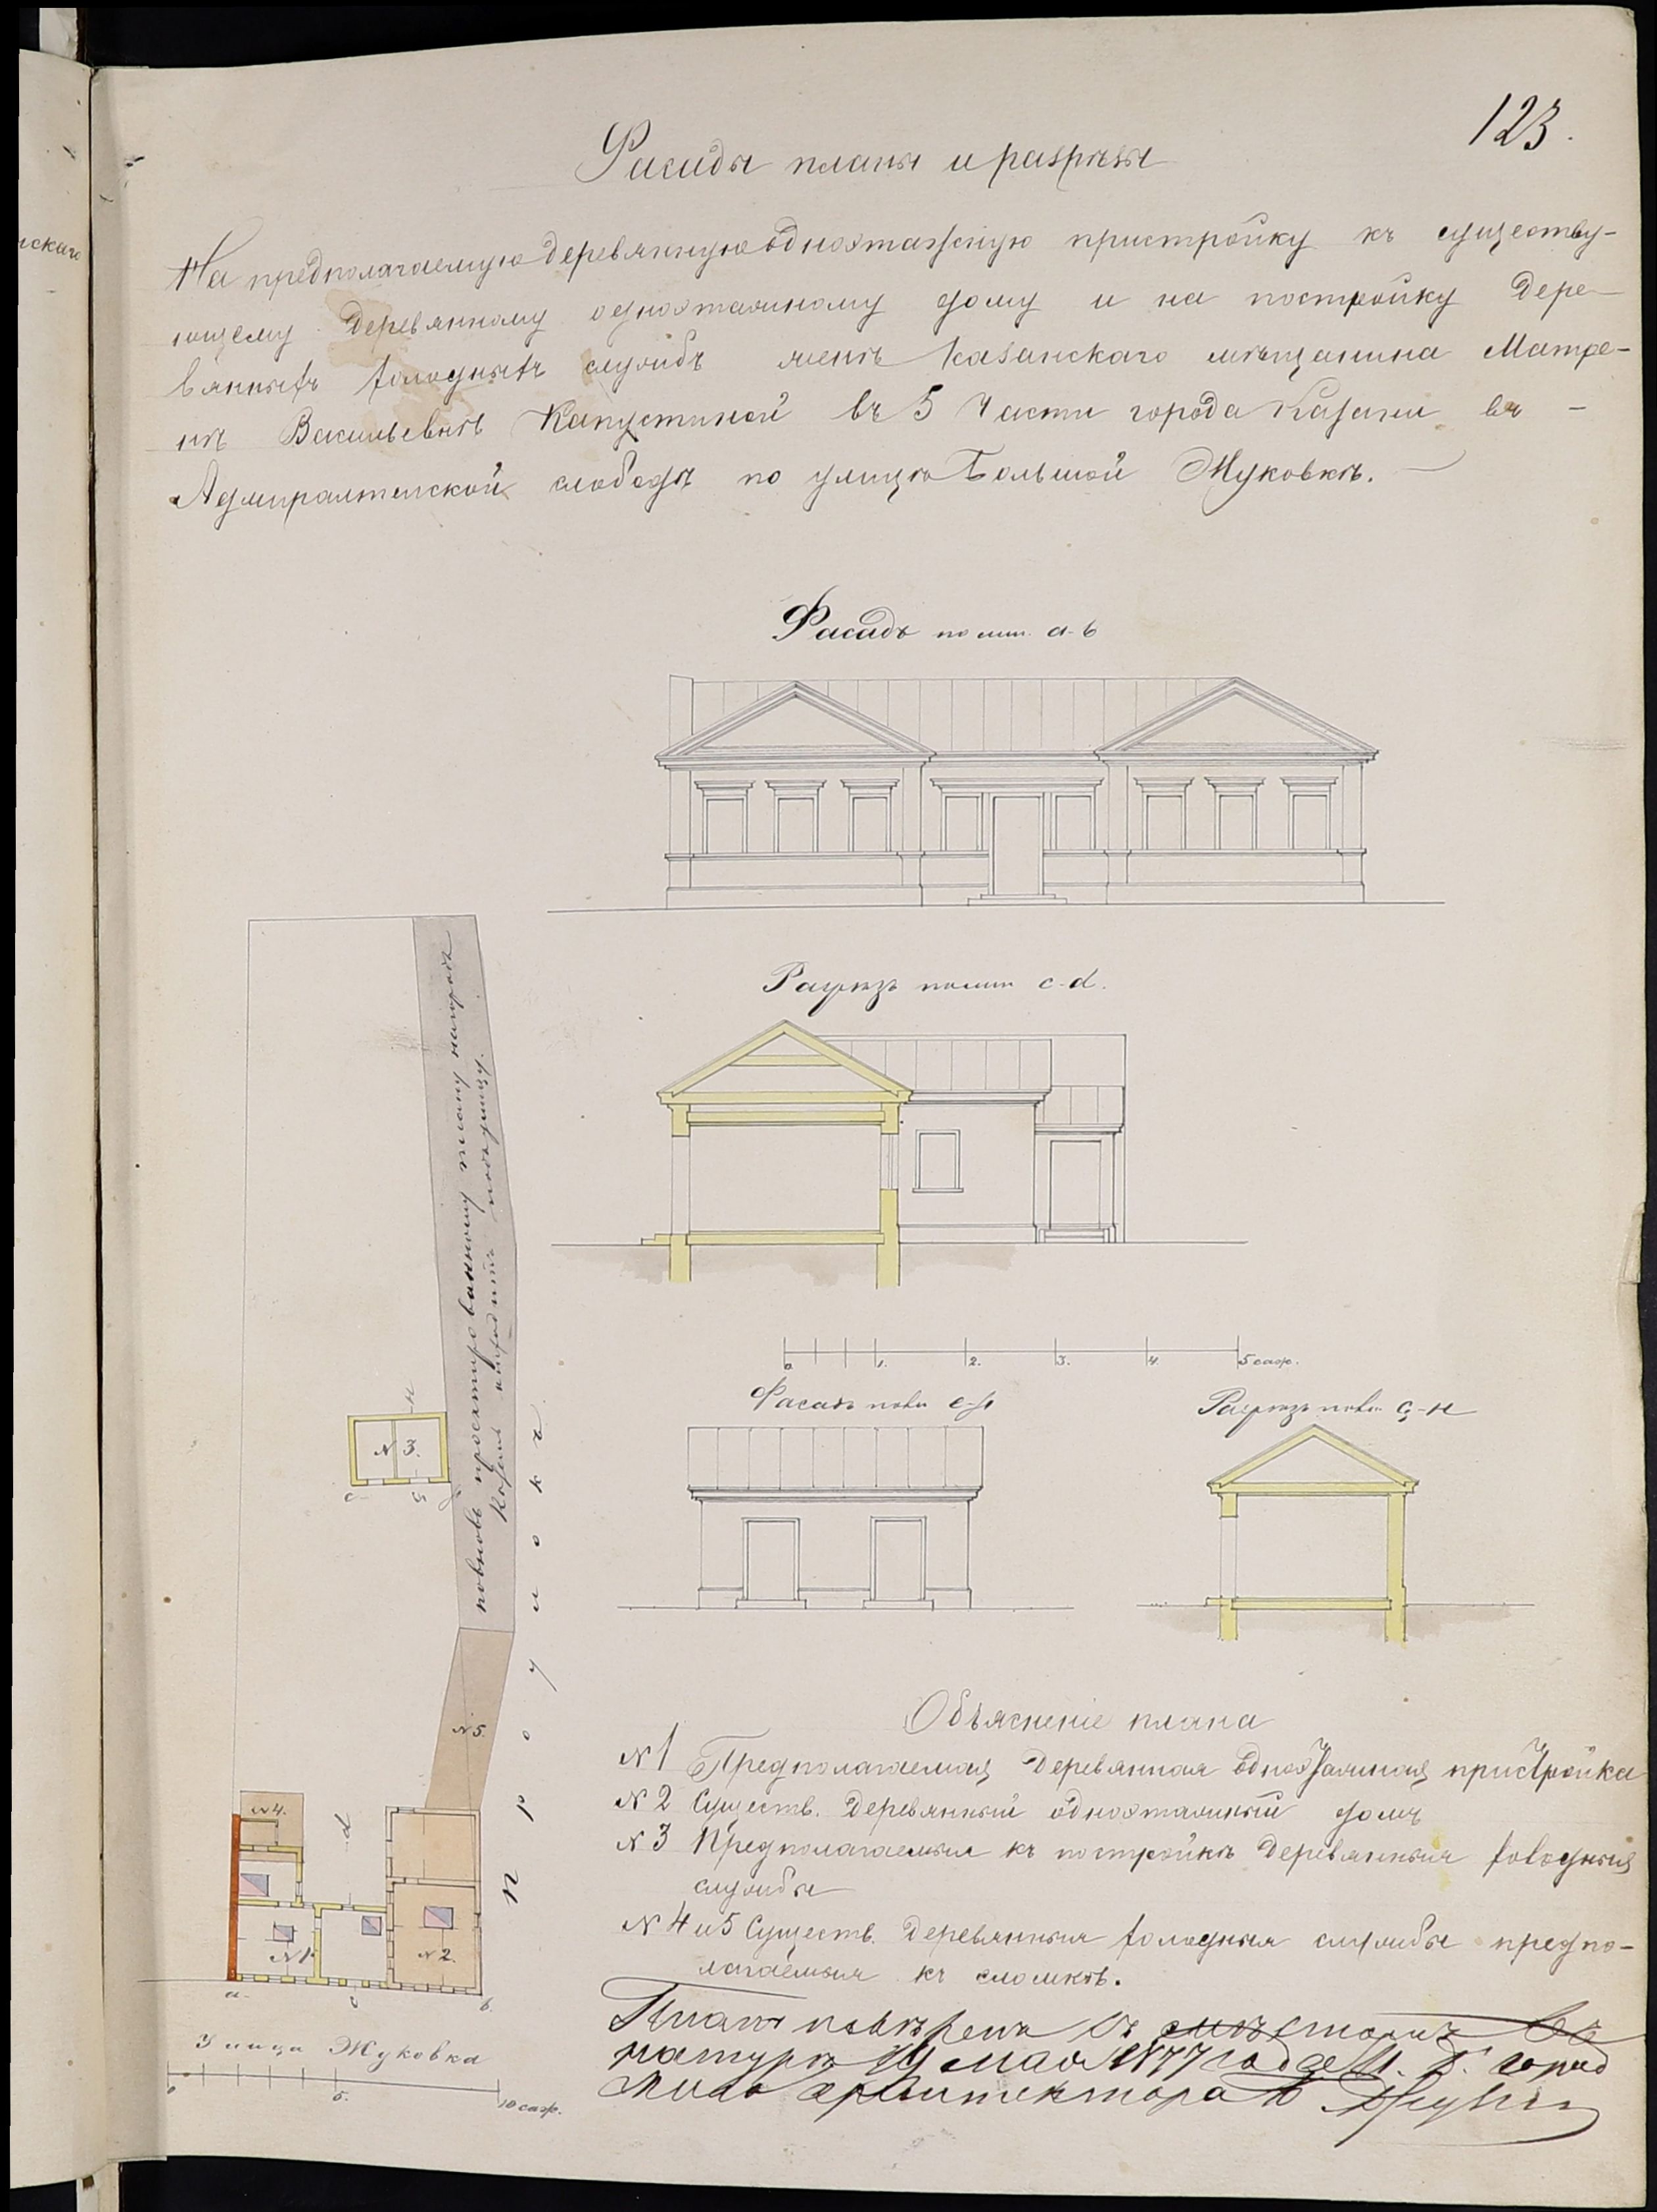 123.
Фасады планы и разрѣзы
На предполагаемую деревянную одноэтажную пристройку къ существу-
ющему деревянному одноэтажному дому и на постройку дере-
вянныхъ холодныхъ службъ женѣ Казанскаго мѣщанина Матре-
нѣ Васильевнѣ Капустиной въ 5 части города Казани въ -
Адмиралтейской слободѣ по улицѣ Большой Жуковкѣ.
Фасадъ по лин. a-b
Разрѣзъ по лин c-d.
0. 1. 2. 3. 4. 5 саж.
Фасадъ по ли e-f
Разрѣзъ по ли g-н
повновь проэктированному плану города
Казани отходитъ подъ улицу.
N 3.
N 5.
N 4.
N 1
N 2.
a. b.
d
c
Проулокъ
Улица Жуковка
0 5. 10 саж.
Объясненіе плана
N 1 Предполагаемая деревянная одноэтажная пристройка
N 2 Существ. деревянный одноэтажный домъ
N 3 Предполагаемыя къ постройкѣ деревянныя холодныя
службы
N 4 и 5 Существ. деревянныя холодныя службы предпо-
лагаемыя къ сломкѣ.
Планъ повѣренъ съ мѣстомъ въ
натурѣ 19 мая 1877 года И. д. город
скаго архитектора